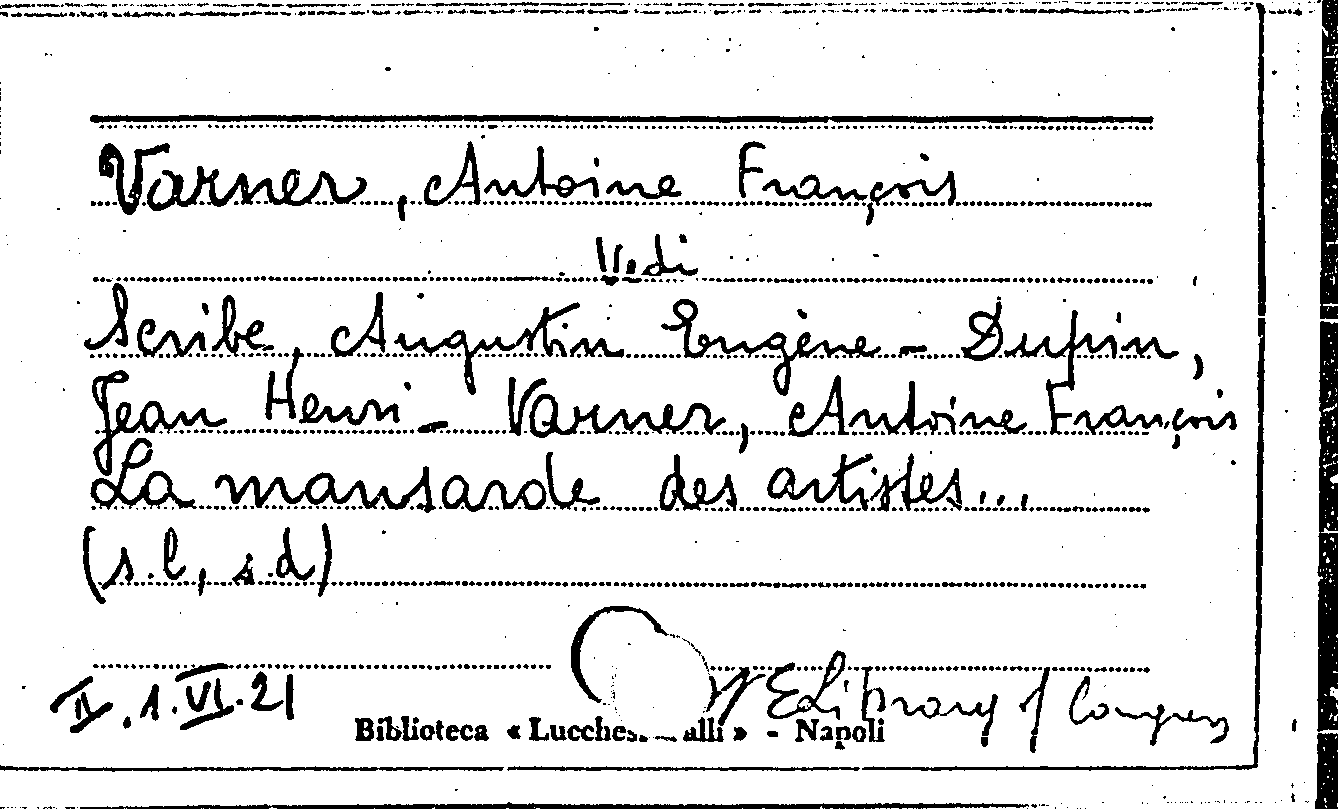 Varner, Antoine François
Vedi
Scribe, Augustin Eugène - Dupin,
Jean Henri - Varner, Antoine François
La mansarde des artistes...
(s.l, s.d)
II.1.VI.21
Library of Congress
Biblioteca « Lucches alli » - Napoli